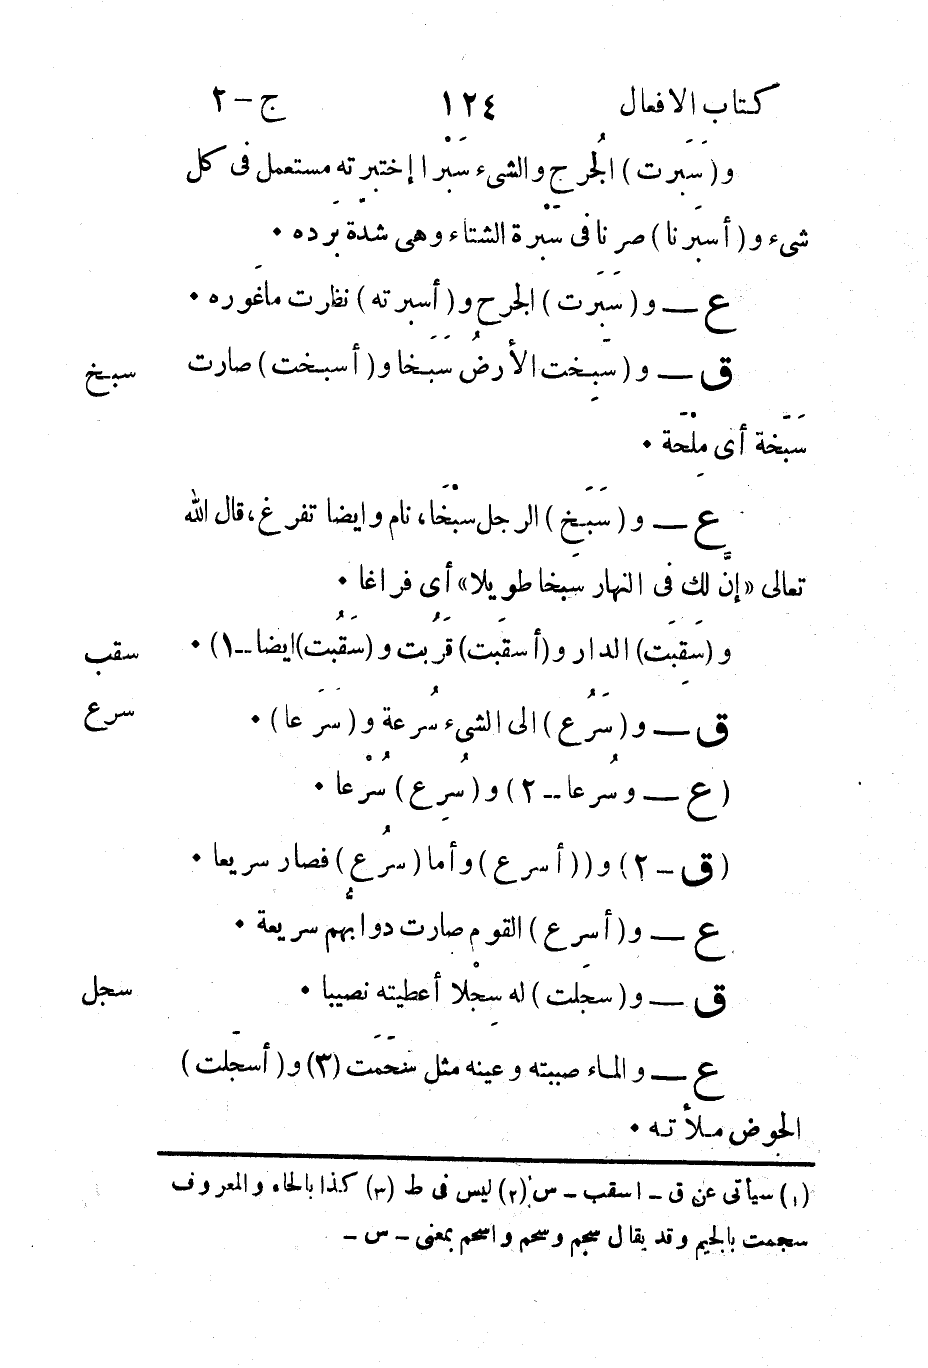 كتاب الافعال ١٢٤ ج – ٢
و (سَبَرت) الجُرح والشىء سَبْرا إختبرته مستعمل فى كل
شىء و (أسبَرنا) صرنا فى سَبْرة الشتاء وهى شدة بَرده •
ع — و (سَبَرت) الجرح و (أسبرته) نظرت ماغَوره •
ق — و (سَبِخت الأرضُ سَبَخا و (أسبخت) صارت
سبخ
سَبِخَة أى مِلْحَة •
ع — و (سَبَخ) الرجل سَبْخا، نام وايضا تفرغ، قال الله
تعالى «إنَّ لك فى النهار سبخا طويلا» أى فراغا •
و (سَقِبَت) الدار و (أسقَبت) قَرُبت و (سَقُبت) ايضا ــ ١) •
سقب
ق — و (سَرُع) الى الشىء سُرعة و (سَرَعا) •
سرع
(ع — وسُرعا ــ ٢) و (سُرِع) سُرْعا •
(ق – ٢) و ((أسرع) وأما (سرُع) فصار سريعا •
ع — و (أسرع) القوم صارت دوابُّهم سريعة •
ق — و (سجَلت) له سِجْلا أعطيته نصيبا •
سجل
ع — والماء صببته وعينه مثل سَحَمَت (٣) و (أسجَلت)
الحوض ملأته •
(١) سيأتى عن ق – اسقب – س (٢) ليس فى ط (٣) كذا بالحاء والمعروف
سجمت بالجيم وقد يقال سجم وسحم واسحم بمعنى – س –